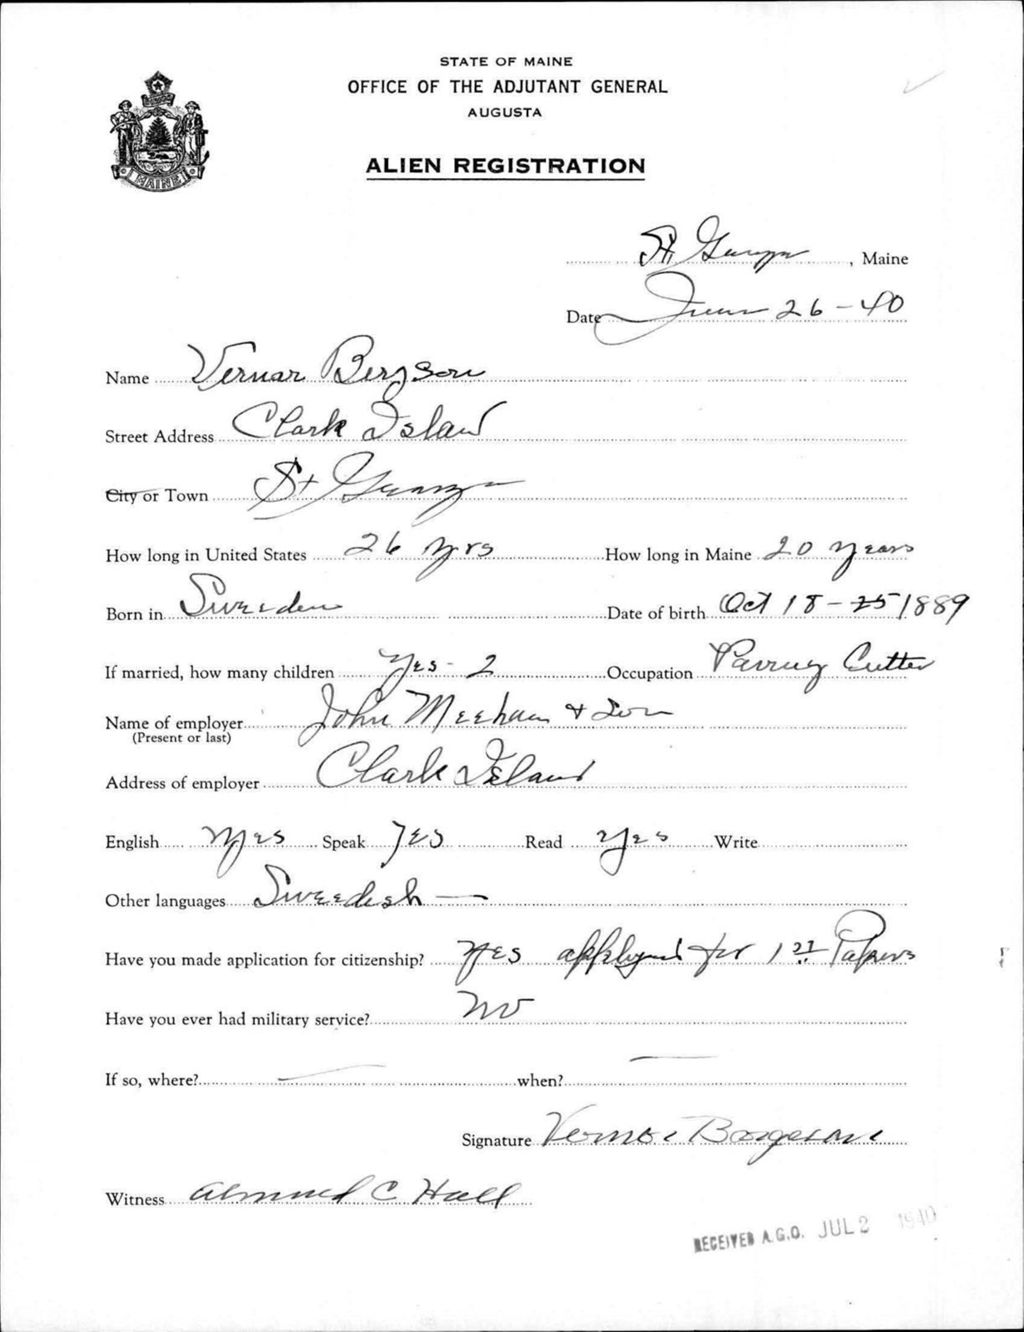 STATE OF MAINE
OFFICE OF THE ADJUTANT GENERAL
AUGUSTA
MAINE
ALIEN REGISTRATION
St George, Maine
Date June 26-40
Name Vernar Bergson
Street Address Clark Island
City or Town St George
How long in United States 26 yrs How long in Maine 20 years
Born in Sweeden Date of birth Oct 18-25 1889
If married, how many children Yes - 2 Occupation Paving Cutter
Name of employer John Meehan & Son
(Present or last)
Address of employer Clark Island
English Yes Speak Yes Read Yes Write
Other languages Sweedish —
Have you made application for citizenship? Yes applyed for 1st Papers
Have you ever had military service? No
If so, where? — when? —
Signature Borgeson
Witness C Hall
RECEIVED A.G.O. JUL 2 1940